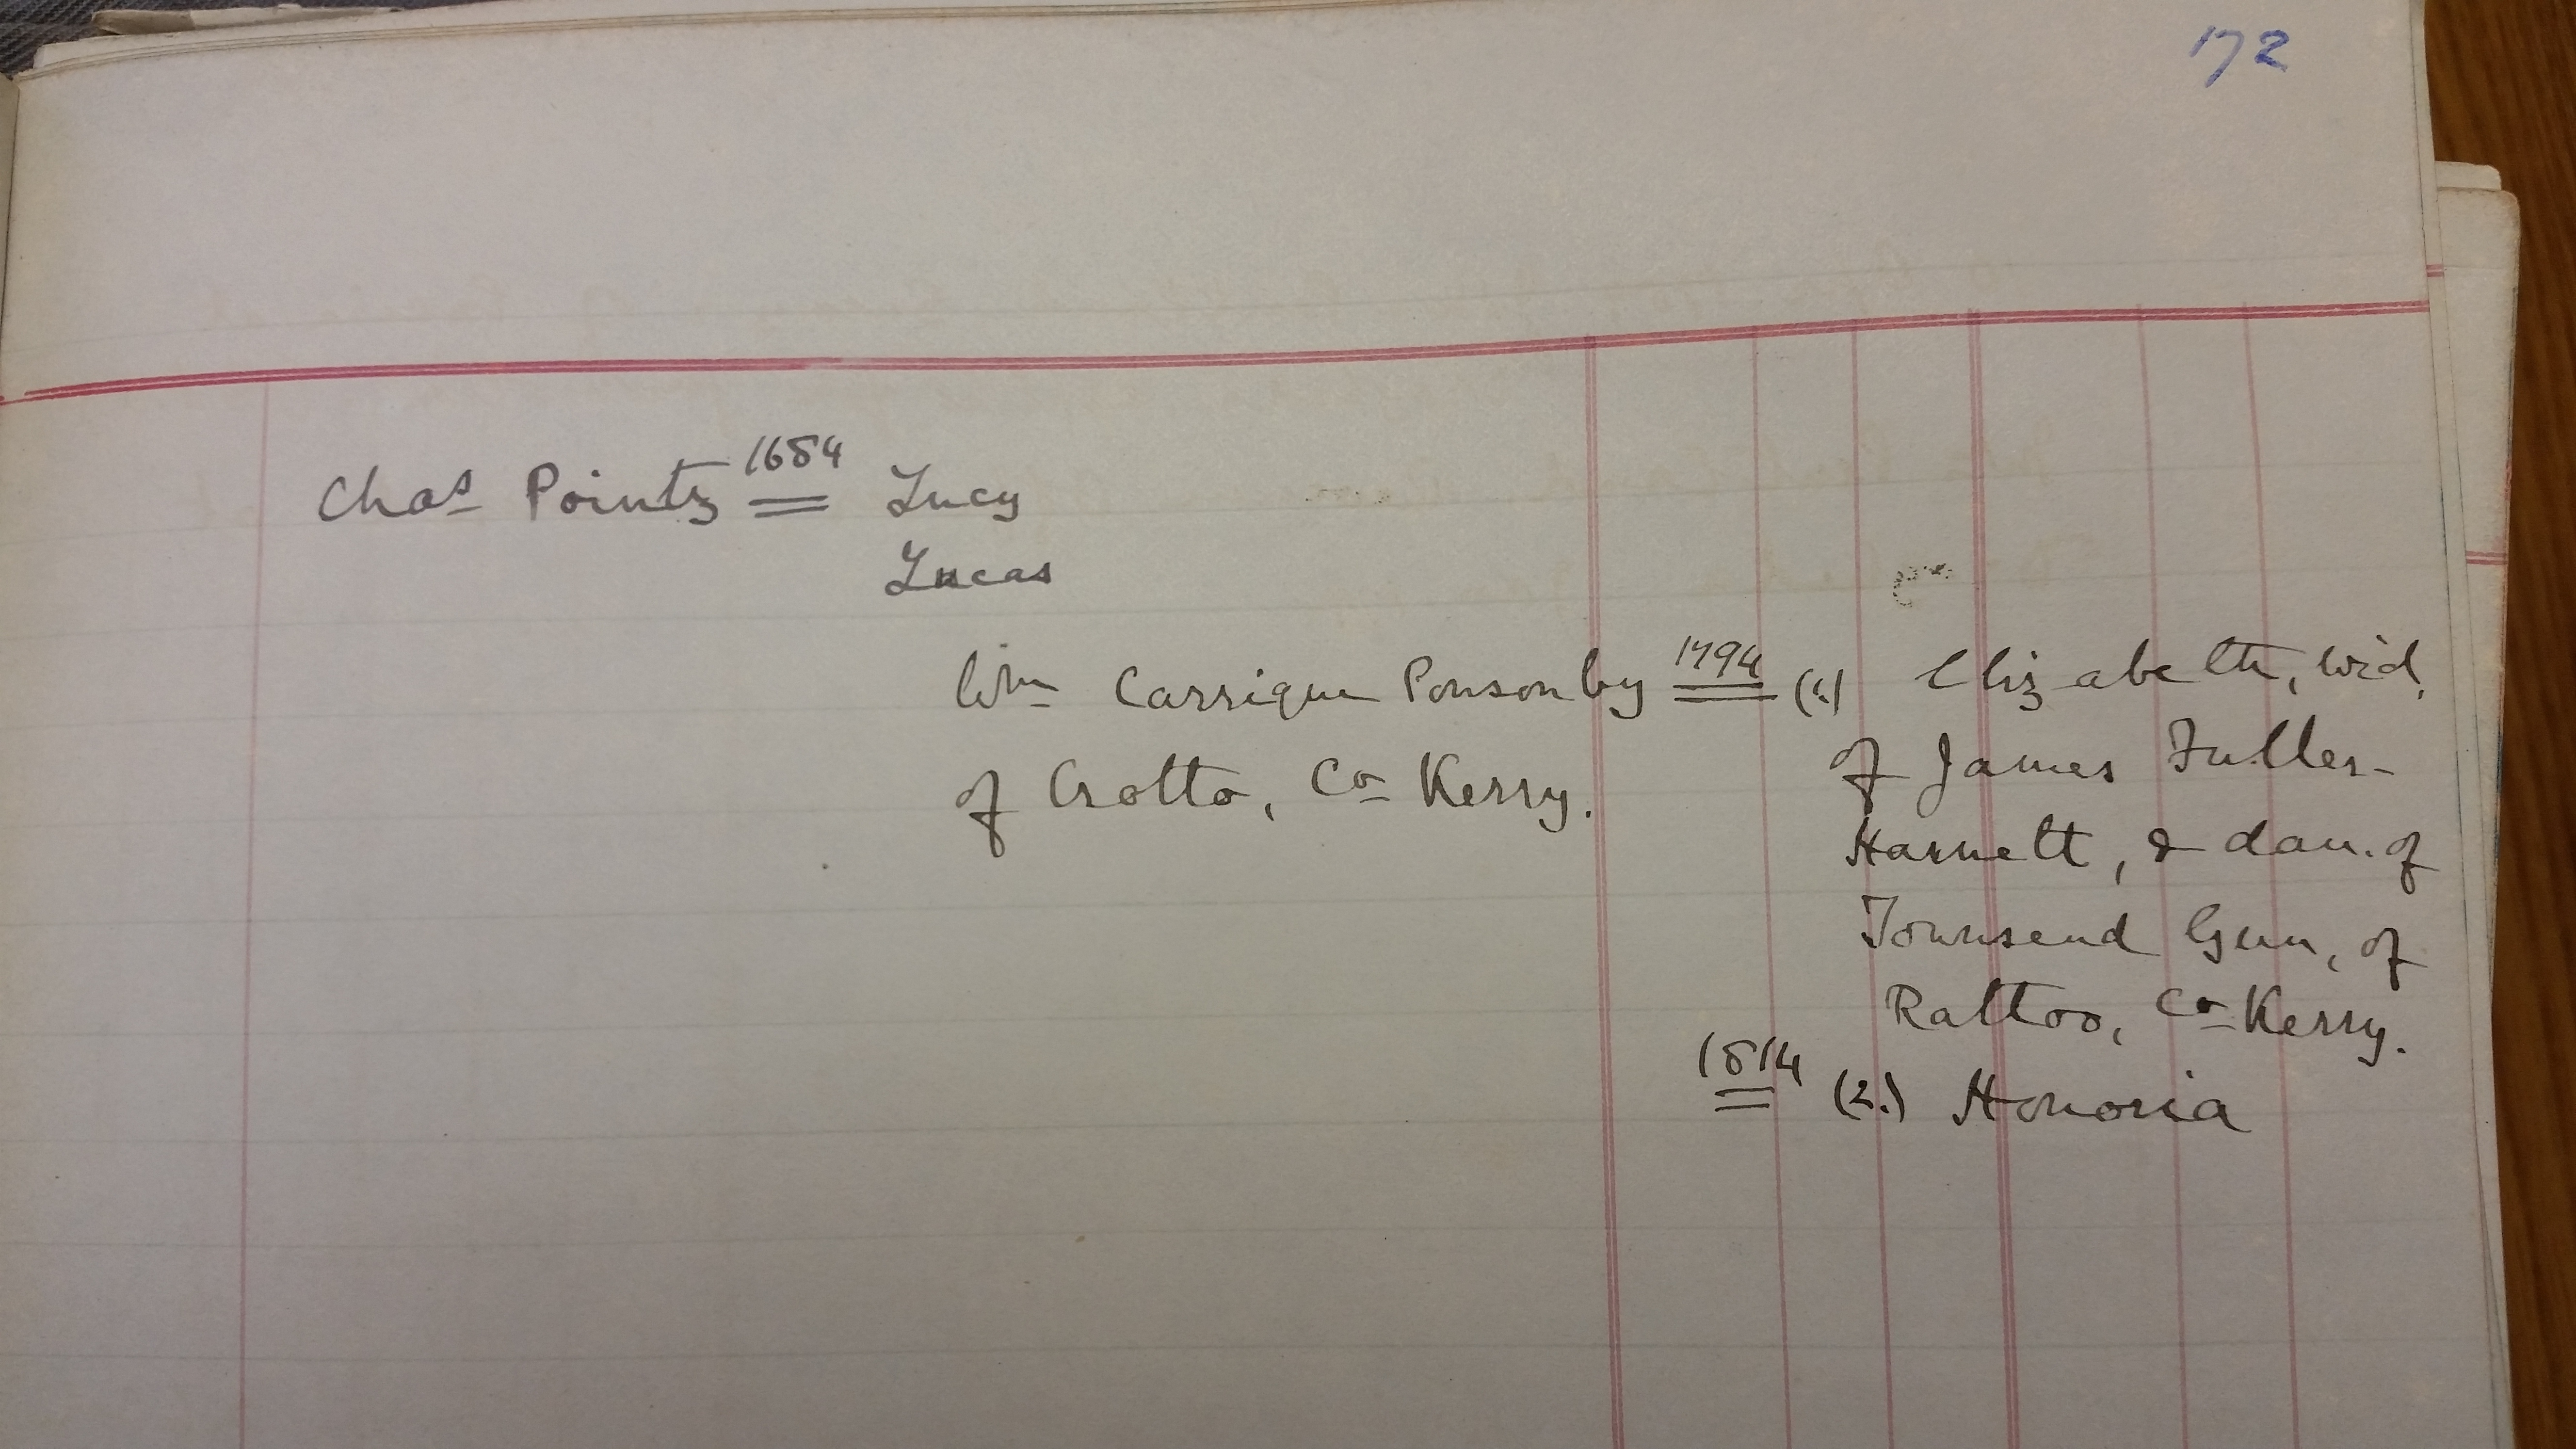 172
Chas Pointz 1684 = Lucy
Lucas
Wm Carrique Ponsonby 1794 = (1.) Elizabeth, wid.
of Crotto, Co Kerry. of James Fuller-
Harnett, & dau. of
Townsend Gun, of
Rattoo, Co Kerry.
1814 = (2.) Honoria